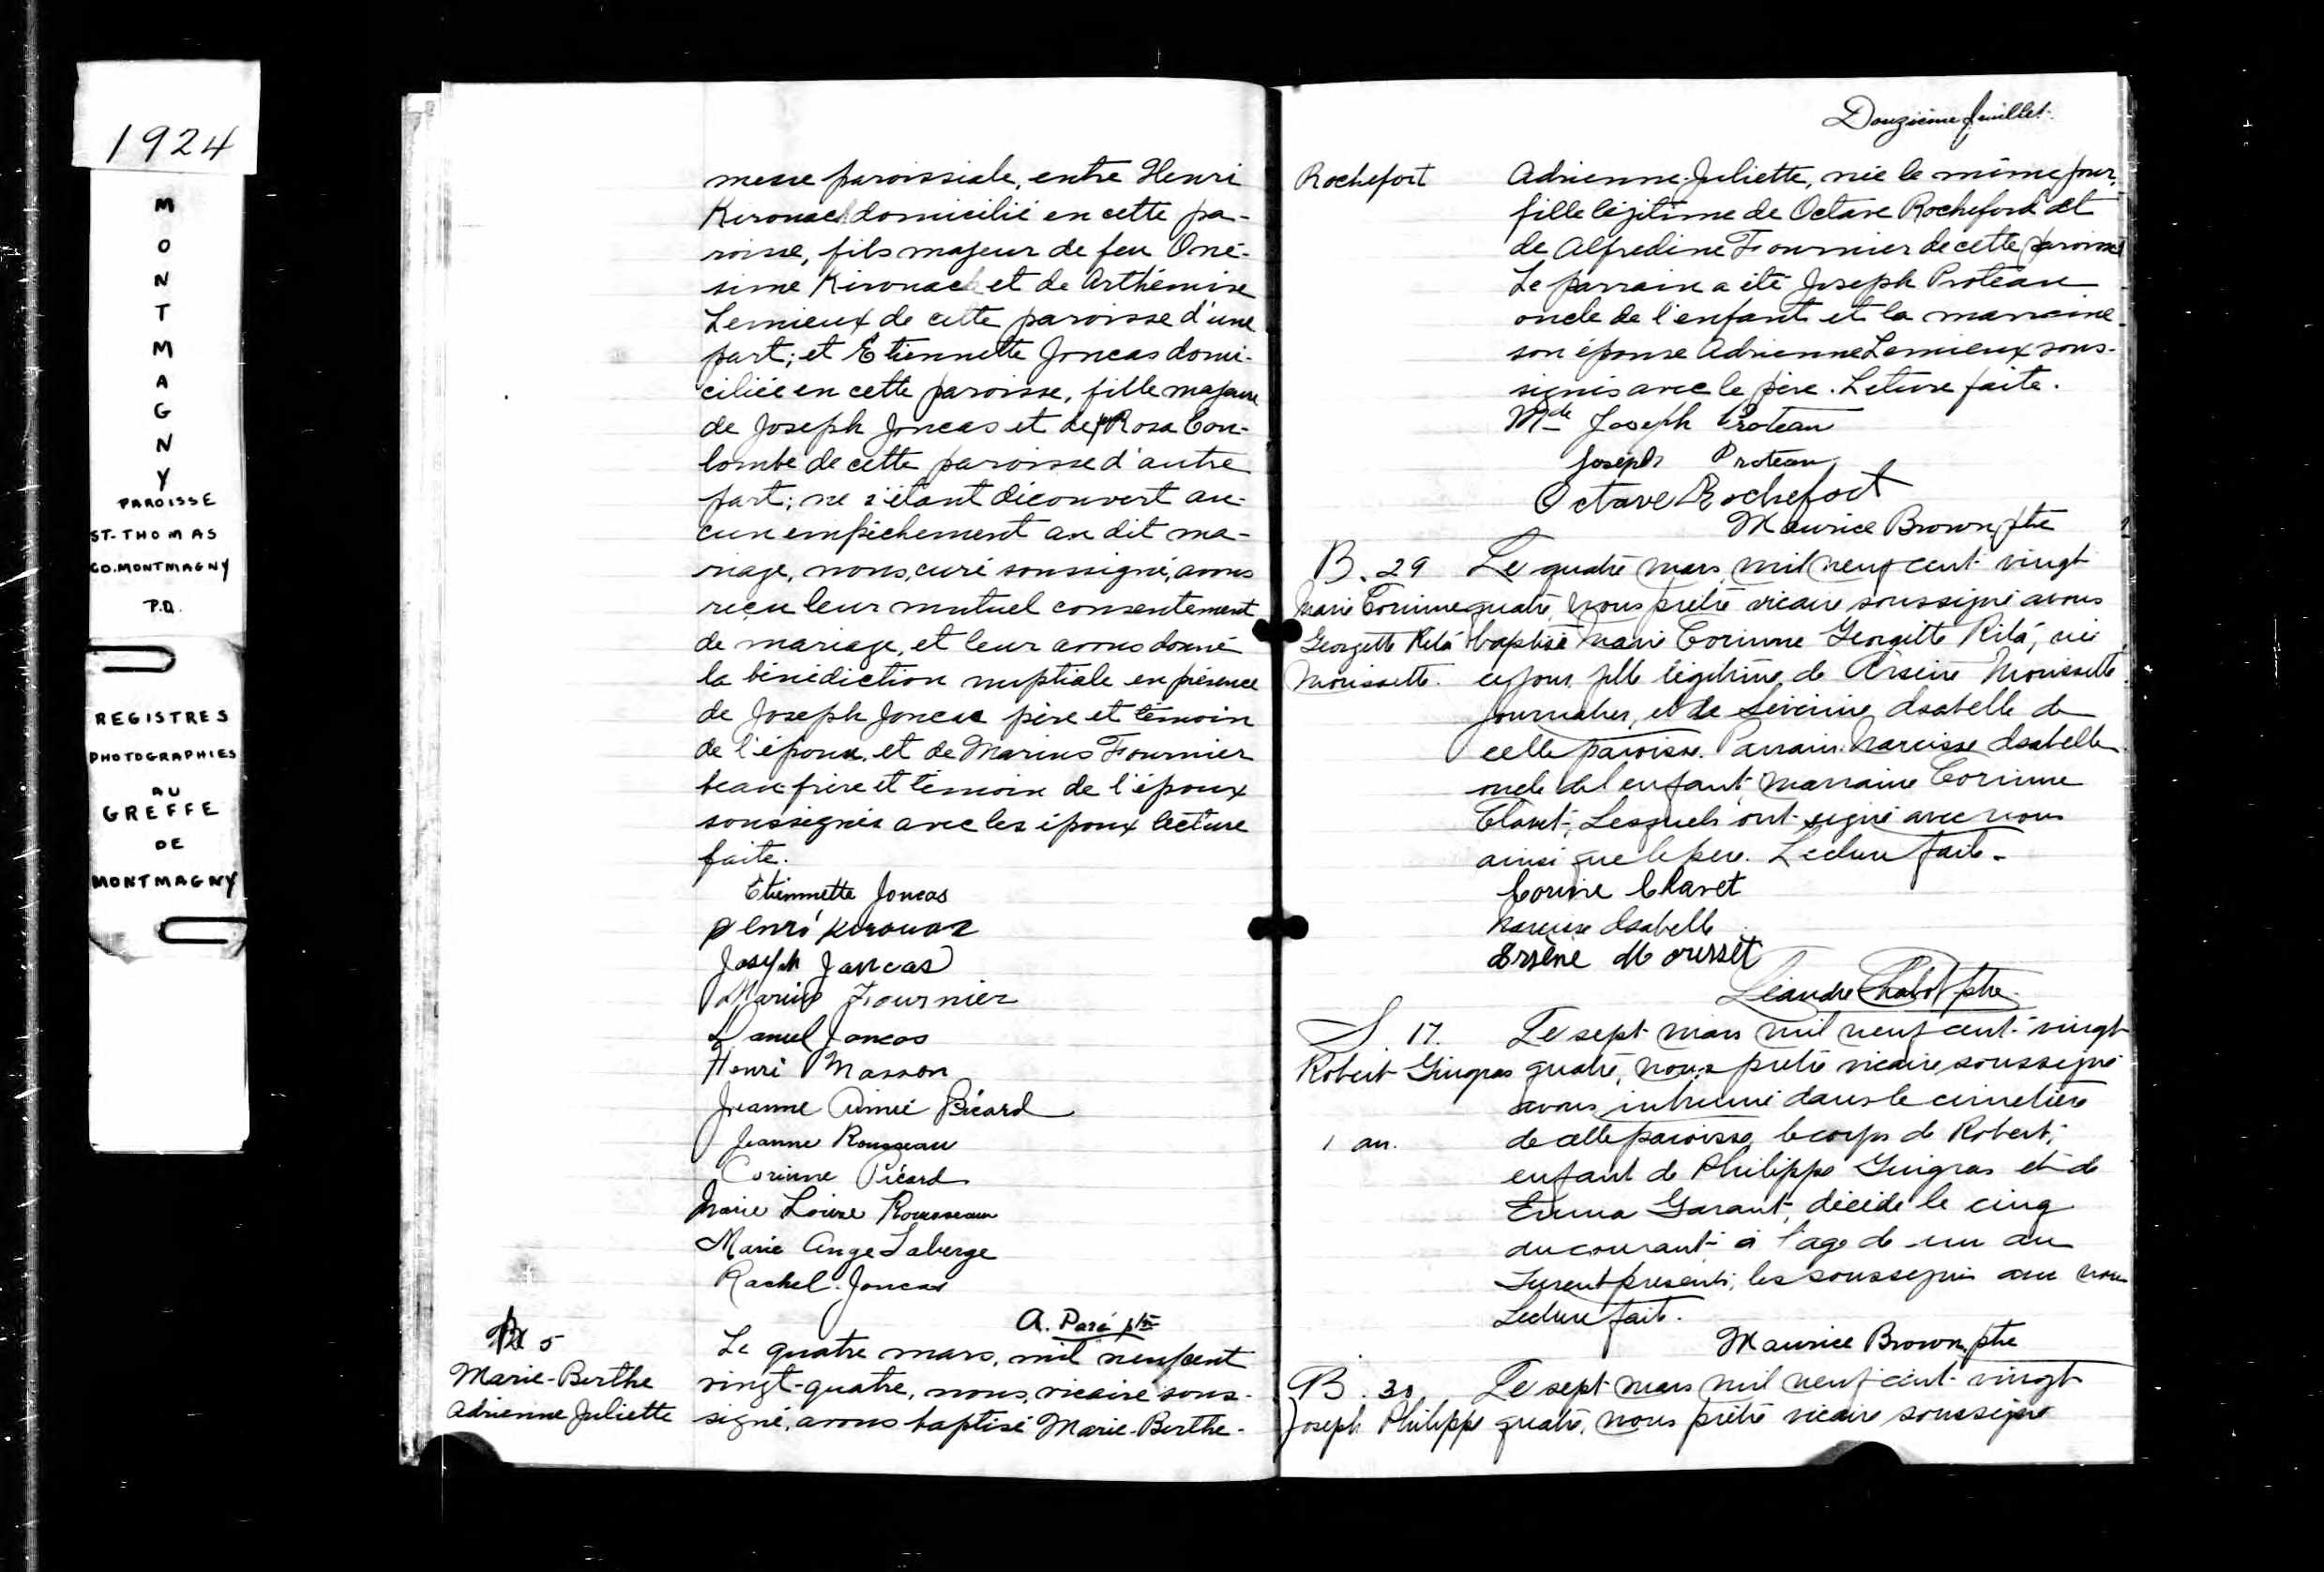 1924
MONTMAGNY
PAROISSE
ST-THOMAS
CO. MONTMAGNY
P.Q.
REGISTRES
PHOTOGRAPHIES
AU
GREFFE
DE
MONTMAGNY
messe paroissiale, entre Henri
Kirouac domicilié en cette pa-
roisse, fils majeur de feu Oné-
sime Kirouac et de Arthémise
Lemieux de cette paroisse d'une
part; et Etiennette Joncas domi-
ciliée en cette paroisse, fille majeure
de Joseph Joncas et de Rosa Cou-
lombe de cette paroisse d'autre
part; ne s'étant découvert au-
cun empêchement au dit ma-
riage, nous, curé soussigné, avons
reçu leur mutuel consentement
de mariage, et leur avons donné
la bénédiction nuptiale en présence
de Joseph Joncas père et témoin
de l'épouse, et de Marius Fournier
beau-frère et témoin de l'époux
soussignés avec les époux lecture
faite.
Etiennette Joncas
Henri Kirouac
Joseph Joncas
Marius Fournier
Daniel Joncas
Henri Masson
Jeanne Aimée Picard
Jeanne Rousseau
Corinne Picard
Marie Louise Rousseau
Marie Ange Laberge
Rachel Joncas
A. Paré ptre
5
Marie-Berthe
Adrienne Juliette
Le quatre mars, mil neuf cent
vingt-quatre, nous, vicaire sous-
signé, avons baptisé Marie-Berthe-
Douzième feuillet.
Rochefort
Adrienne-Juliette, née le même jour,
fille légitime de Octave Rochefort et
de Alfredine Fournier de cette paroisse
Le parrain a été Joseph Proteau
oncle de l'enfant et la marraine
son épouse Adrienne Lemieux sous-
signés avec le père. Lecture faite.
Mde Joseph Proteau
Joseph Proteau
Octave Rochefort
Maurice Brown, ptre
B. 29
Marie Corinne
Georgette Rita
Morissette.
Le quatre mars mil neuf cent vingt
quatre, nous prêtre vicaire soussigné avons
baptisé Marie Corinne Georgette Rita, née
ce jour, fille légitime de Arsène Morissette
journalier, et de Séverine Isabelle de
cette paroisse. Parrain Narcisse Isabelle
oncle de l'enfant, marraine Corinne
Clavet, Lesquels ont signé avec nous
ainsi que le père. Lecture faite.
Corine Clavet
Narcisse Isabelle
Ersène Mourisset
Léandre Chabot ptre.
S. 17.
Robert Gingras
1 an.
Le sept mars mil neuf cent vingt
quatre, nous prêtre vicaire soussigné
avons inhumé dans le cimetière
de cette paroisse, le corps de Robert,
enfant de Philippe Gingras et de
Emma Garant, décédé le cinq
du courant à l'age de un an
Furent présents, les soussignés avec nous
Lecture faite.
Maurice Brown, ptre
B. 30
Joseph Philippe
Le sept mars mil neuf cent vingt
quatre, nous prêtre vicaire soussigné